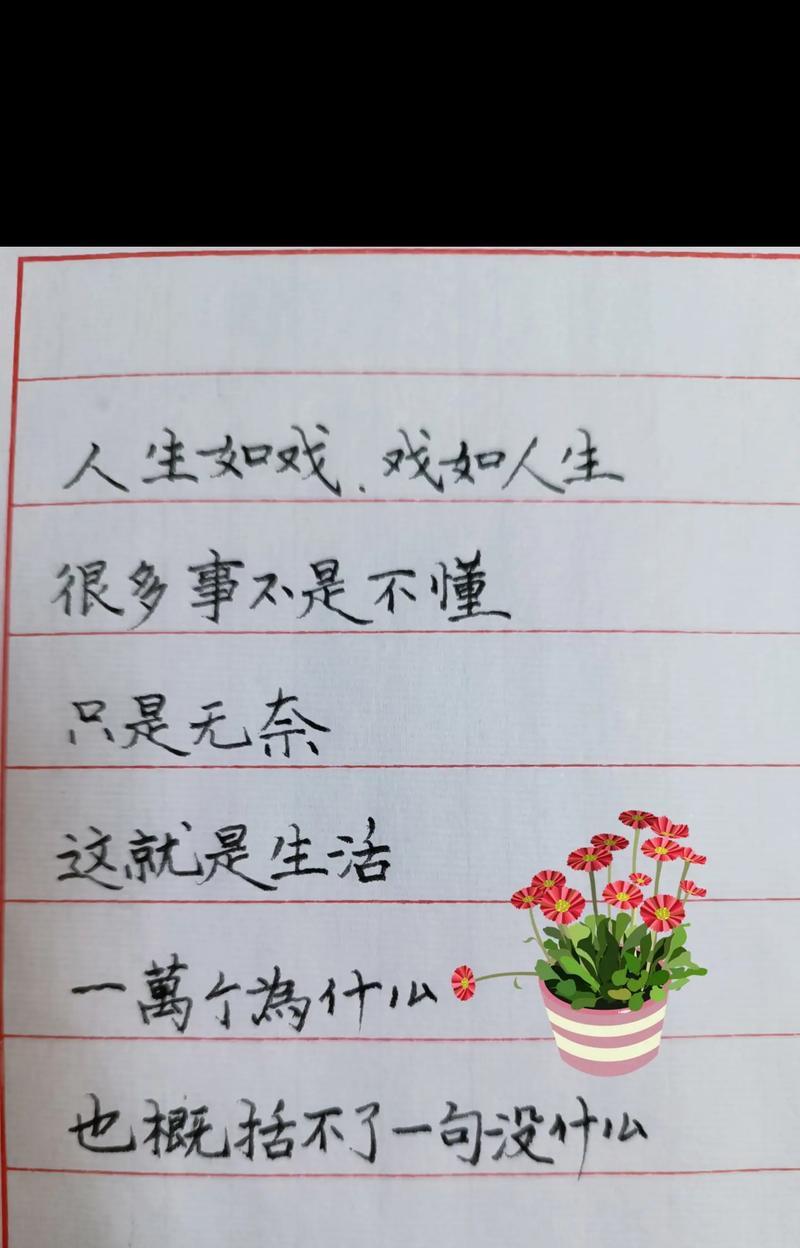 人生如戏.戏如人生
很多事不是不懂
只是无奈
这就是生活
一萬个為什么
也概括不了一句没什么